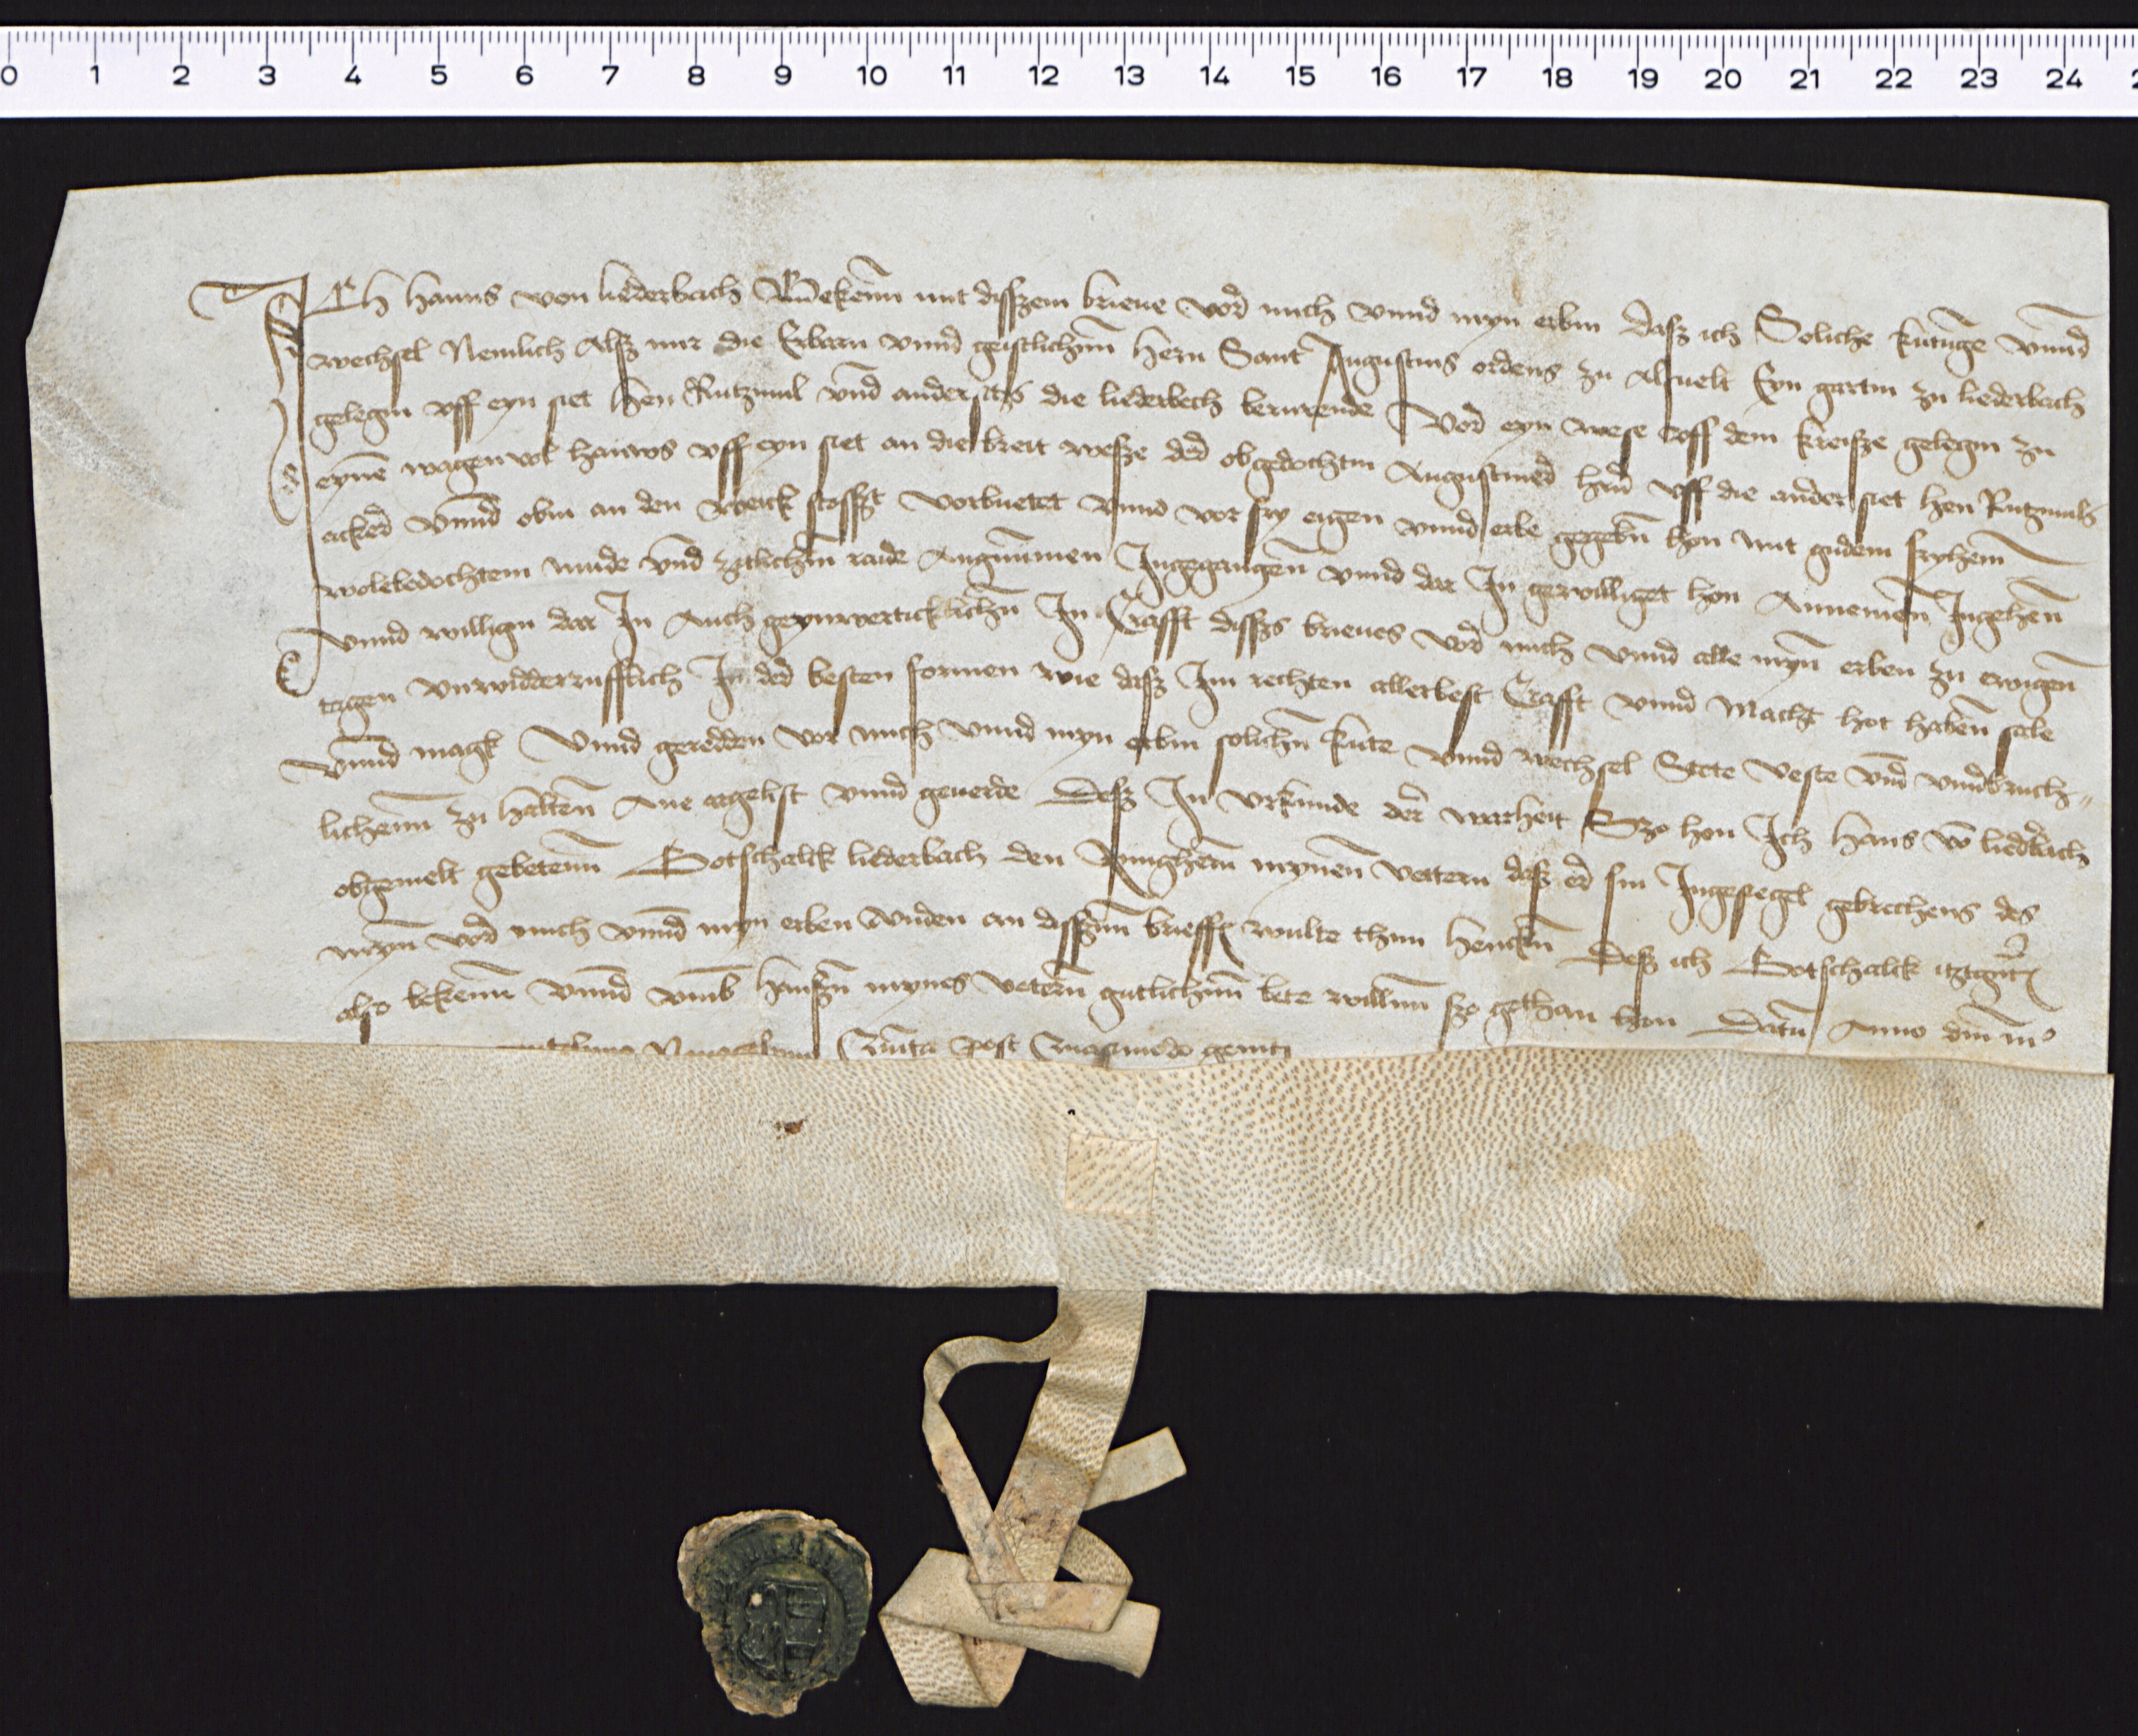 0 1 2 3 4 5 6 7 8 9 10 11 12 13 14 15 16 17 18 19 20 21 22 23 24
Ich Hanns von liederbach Bekenn mit disszem brieue vor mich vnnd myn erbin dasz ich Soliche kutunge vnnd
wechsel Nemlich Alsz mir die Erbarn vnnd geistlichenn hern Sant Augustins ordens zu Alsuelt Eyn gartin zu liederbach
gelegin vff eyn siet Hen Rutzmul vnd ander sitz die liederbech berurende Vor eyn wese vff dem kreisze gelegin zu
eyne wagen vol hauwes vff eyn siet an die breit wesze der obgedochtin Augustiner hern vff die ander siet hen Rutzmuls
acker vnnd obin an den weick stosszt vorbuetet vnnd vor fry eigen vnnd erbe gegebin hon mit gudem fryhem
wolebedochtem mude vnd zitlichem raide Angnummen Ingegangen vnnd dar In gewilliget hon Annemen Ingehen
vnnd willigin dar In Auch geynwerticklichin In Crafft disszs brieues vor mich vnnd alle myn erben zu ewigen
tzigen vnwidderrufflich In der besten formen wie dasz Im rechten allerbest Crafft vnnd Macht hot haben sale
vnnd magk Vnnd geredden vor mich vnnd myn erbin solichen kute vnnd wechsel Stete veste vnd vnuerbruch-
lichenn zu halten Ane argelist vnnd geuerde Desz In vrkunde der warheit Szo hon Ich Hans vo liederbach
obgemelt gebetenn Gotschalck liederbach den Jungherrn mynen vettern dasz er sin Ingesiegel gebrechens des
myn vor mich vnnd myn erben vnden an disszen brieff wulte thun hencken Desz ich Gotschalck itztgnt
also bekenn vnnd vmb Hanszen mynes vetern gutlichenn bete willenn szo gethan hon Datum Anno dm m°
Quinta post Quasimodo geniti